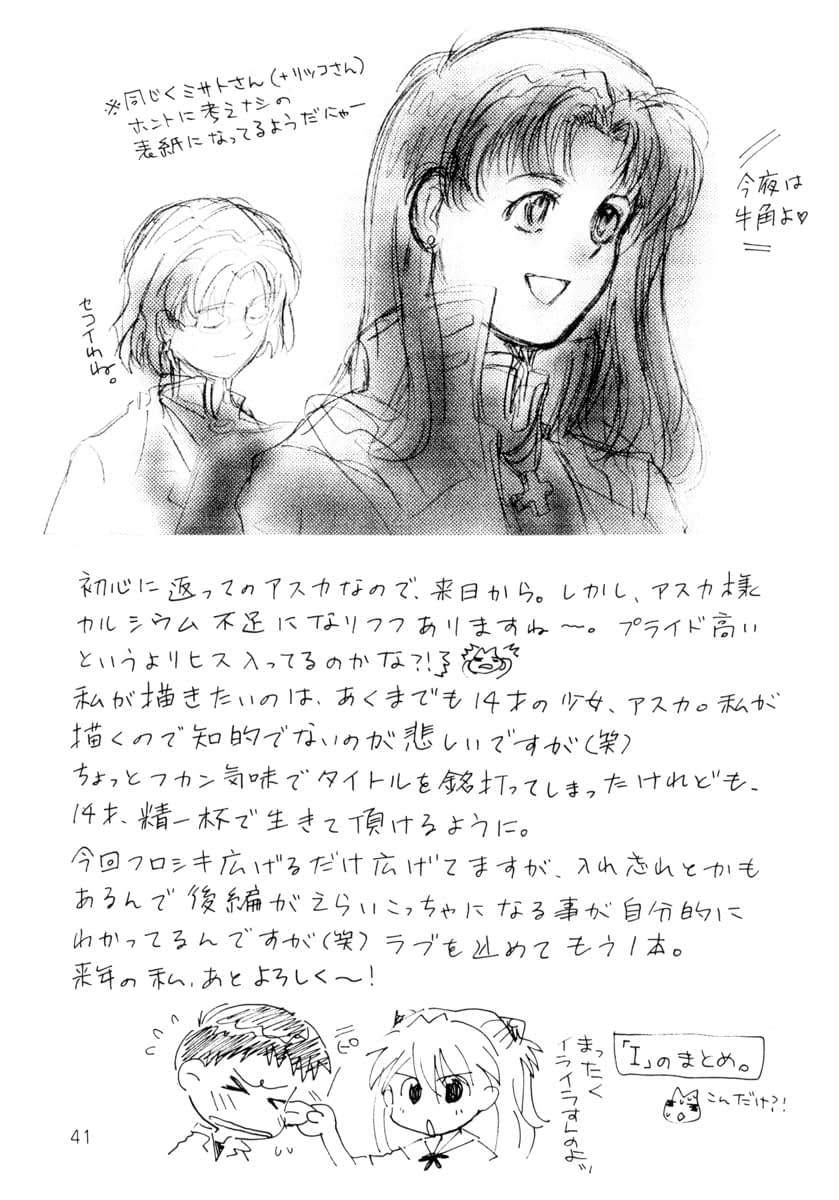 ※同じくミサトさん(+リツコさん)
ホントに考えナシの
表紙になってるようだにゃー
今夜は
牛角よ♡
セコイわね。
初心に返ってのアスカなので、来日から。しかし、アスカ様
カルシウム不足になりつつありますね〜。プライド高い
というよりヒス入ってるのかな?!
私が描きたいのは、あくまでも14才の少女、アスカ。私が
描くので知的でないのが悲しいですが(笑)
ちょっとフカン気味でタイトルを銘打ってしまったけれども、
14才、精一杯で生きて頂けるように。
今回フロシキ広げるだけ広げてますが、入れ忘れとかも
あるんで後編がえらいこっちゃになる事が自分的に
わかってるんですが(笑)ラブを込めてもう1本。
来年の私、あとよろしく〜!
まったく
イライラすんのよッ
「I」のまとめ。
こんだけ?!
41